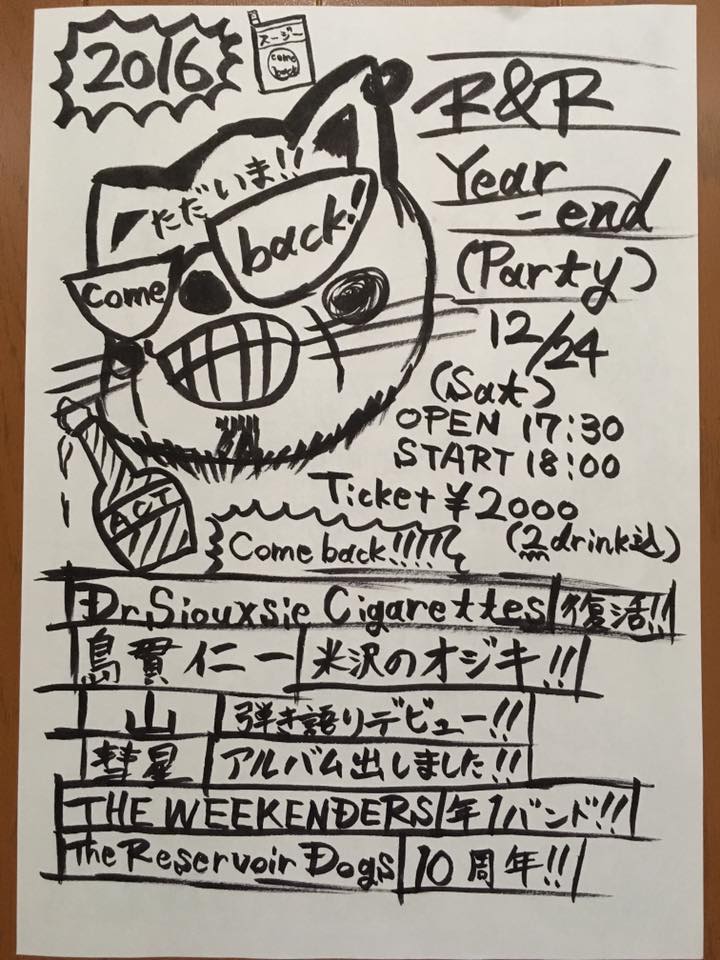 2016
スージー
come
back
R&R
Year
-end
(Party)
ただいま!!
come
back!
12/24
(Sat)
OPEN 17:30
START 18:00
Ticket ¥2000
(2drink込)
ACT
Come back!!!!!
Dr.Siouxsie Cigarettes 復活!!
島貫仁一 米沢のオジキ!!
山 弾き語りデビュー!!
彗星 アルバム出しました!!
THE WEEKENDERS 年1バンド!!!
The Reservoir Dogs 10周年!!